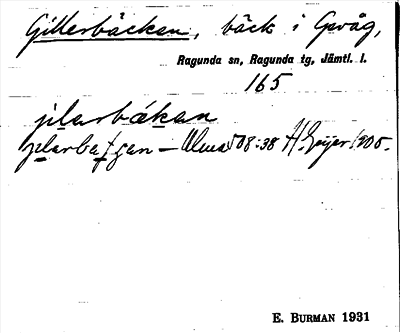 Gillerbäcken, bäck i Gevåg,
Ragunda sn, Ragunda tg, Jämtl. l.
165
jilarbákan
jilarbatjan – Almas 08:38 H. Geijer 1905.
E. BURMAN 1931